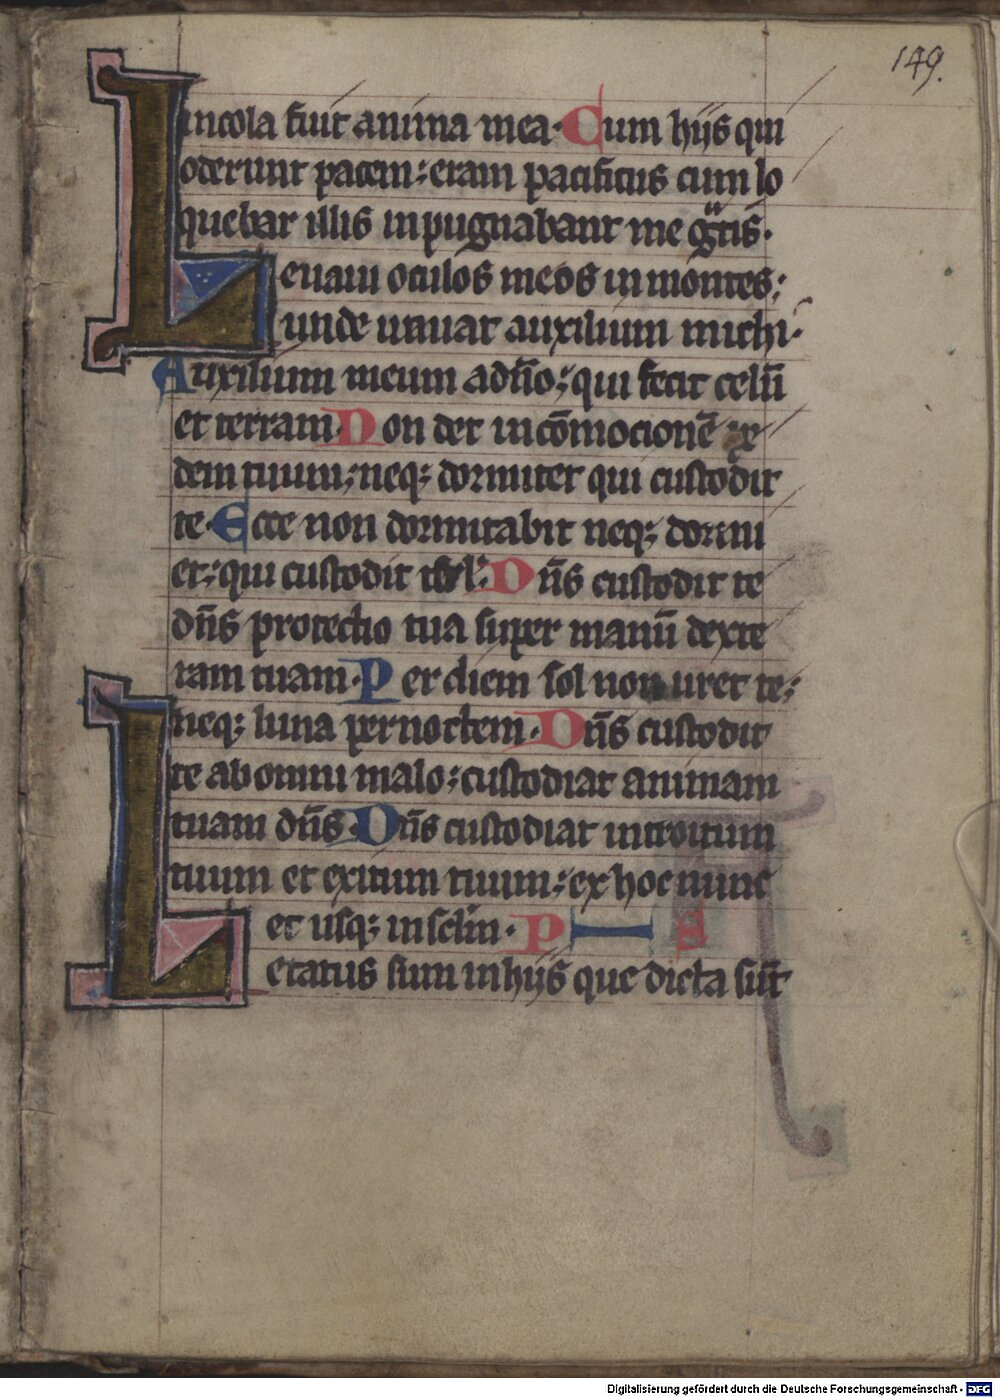 149.
incola fuit anima mea. Cum hijs qui
oderunt pacem: eram pacificus cum lo
quebar illis inpugnabant me gͣtis.
Leuaui oculos meos in montes:
unde ueniat auxilium michi.
Auxilium meum a dn̄o: qui fecit celū
et terram. Non det in cōmocionē pe
dem tuum: neq; dormitet qui custodit
te. Ecce non dormitabit neq; dormi
et: qui custodit isrl'. Dn̄s custodit te
dn̄s protectio tua super manū dexte
ram tuam. Per diem sol non uret te:
neq; luna per noctem. Dn̄s custodit
te ab omni malo: custodiat animam
tuam dn̄s. Dn̄s custodiat introitum
tuum et exitum tuum: ex hoc nunc
et usq; in sclm. P S
Letatus sum in hijs que dicta sūt
Digitalisierung gefördert durch die Deutsche Forschungsgemeinschaft - DFG